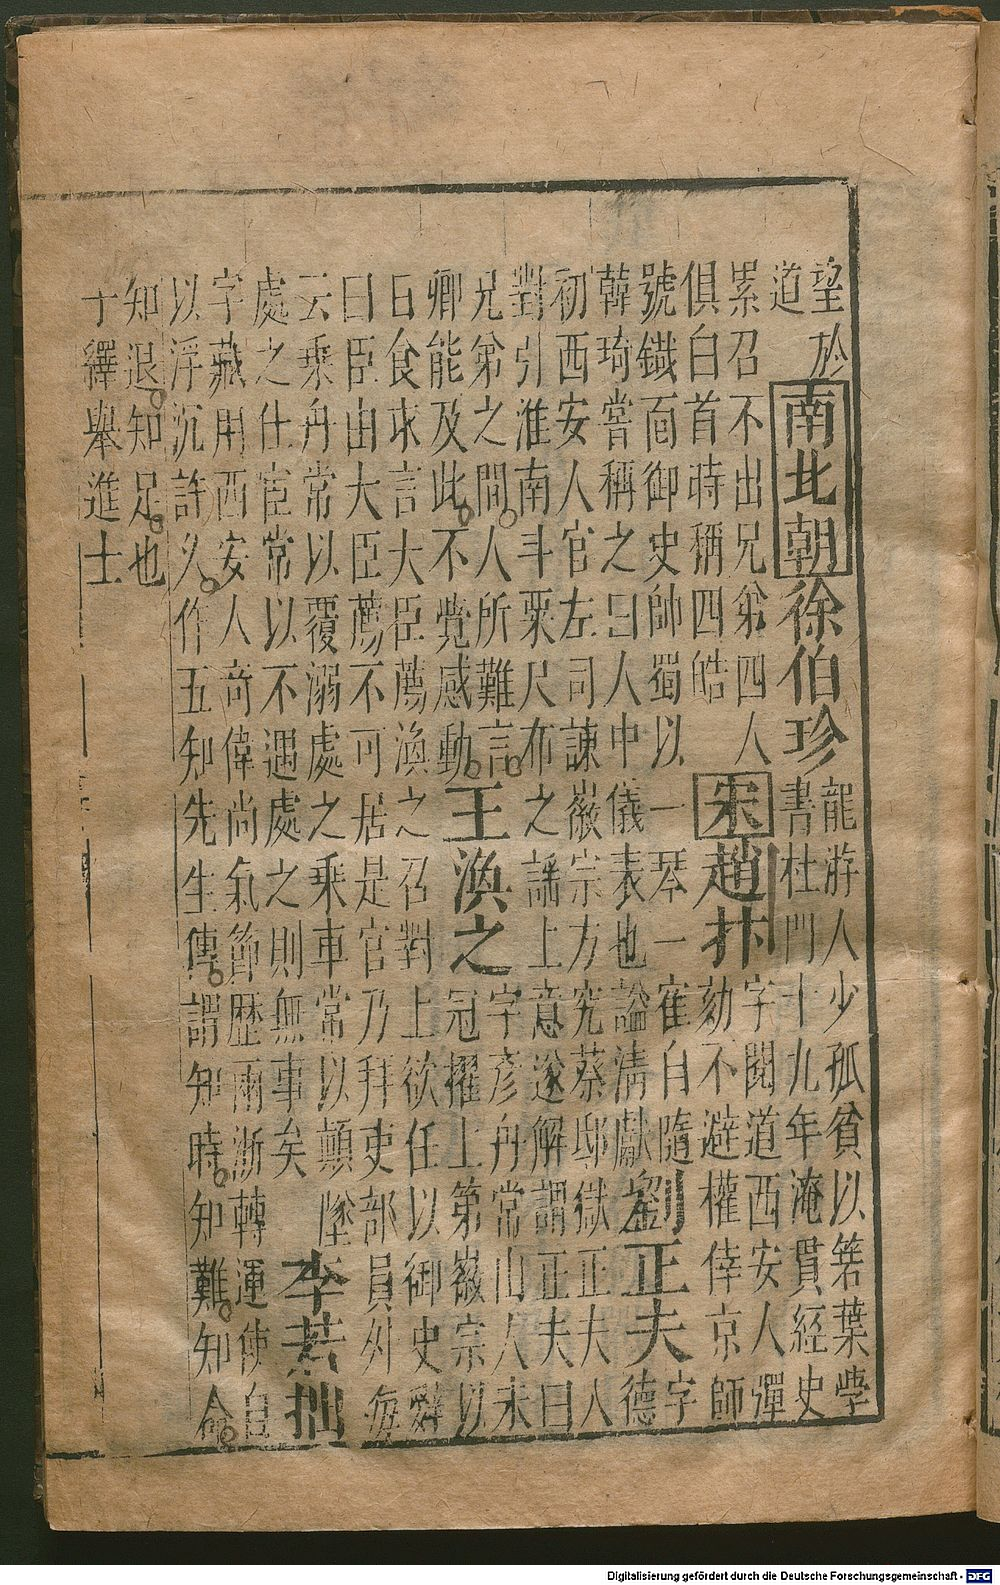 望於
道
南北朝徐伯珍
龍游人少孤貧以箬葉學
書杜門十九年淹貫經史
累召不出兄弟四人
俱白首時稱四皓
宋趙抃
字閱道西安人彈
劾不避權倖京師
號鐵面御史帥蜀以一琴一隺自隨
韓琦嘗稱之曰人中儀表也謚清獻
劉正夫
字
德
初西安人官左司諫徽宗方究蔡邸獄正夫入
對引淮南斗粟尺布之謠上意遂解謂正夫曰
兄弟之間人所難言
卿能及此不覺感動
王渙之
字彥舟常山人未
冠擢上第徽宗以
日食求言大臣薦渙之召對上欲任以御史辭
曰臣由大臣薦不可居是官乃拜吏部員外每
云乘舟常以覆溺處之乘車常以顛墜
處之仕宦常以不遇處之則無事矣
李若拙
字藏用西安人奇偉尚氣節歷兩浙轉運使自
以浮沉許久作五知先生傳謂知時知難知命
知退知足也
于繹舉進士
Digitalisierung gefördert durch die Deutsche Forschungsgemeinschaft - DFG